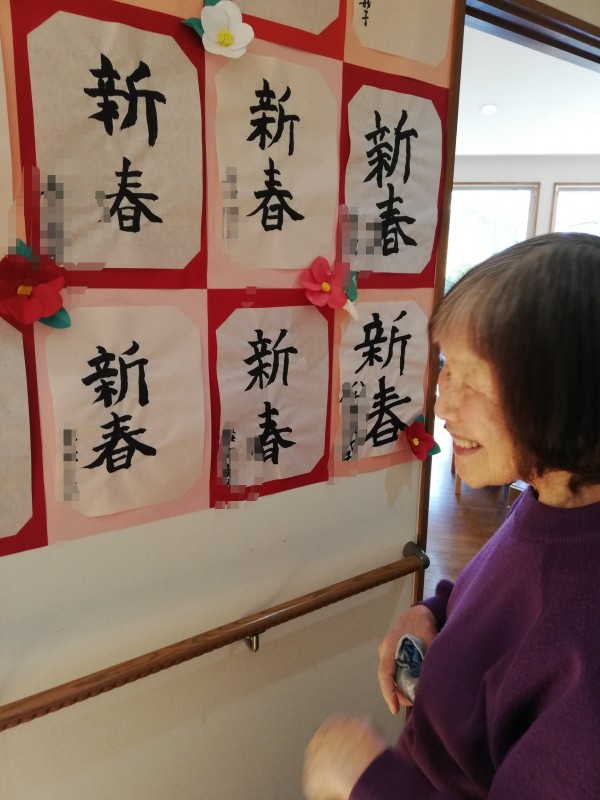 新春
新春
新春
新春
新春
新春